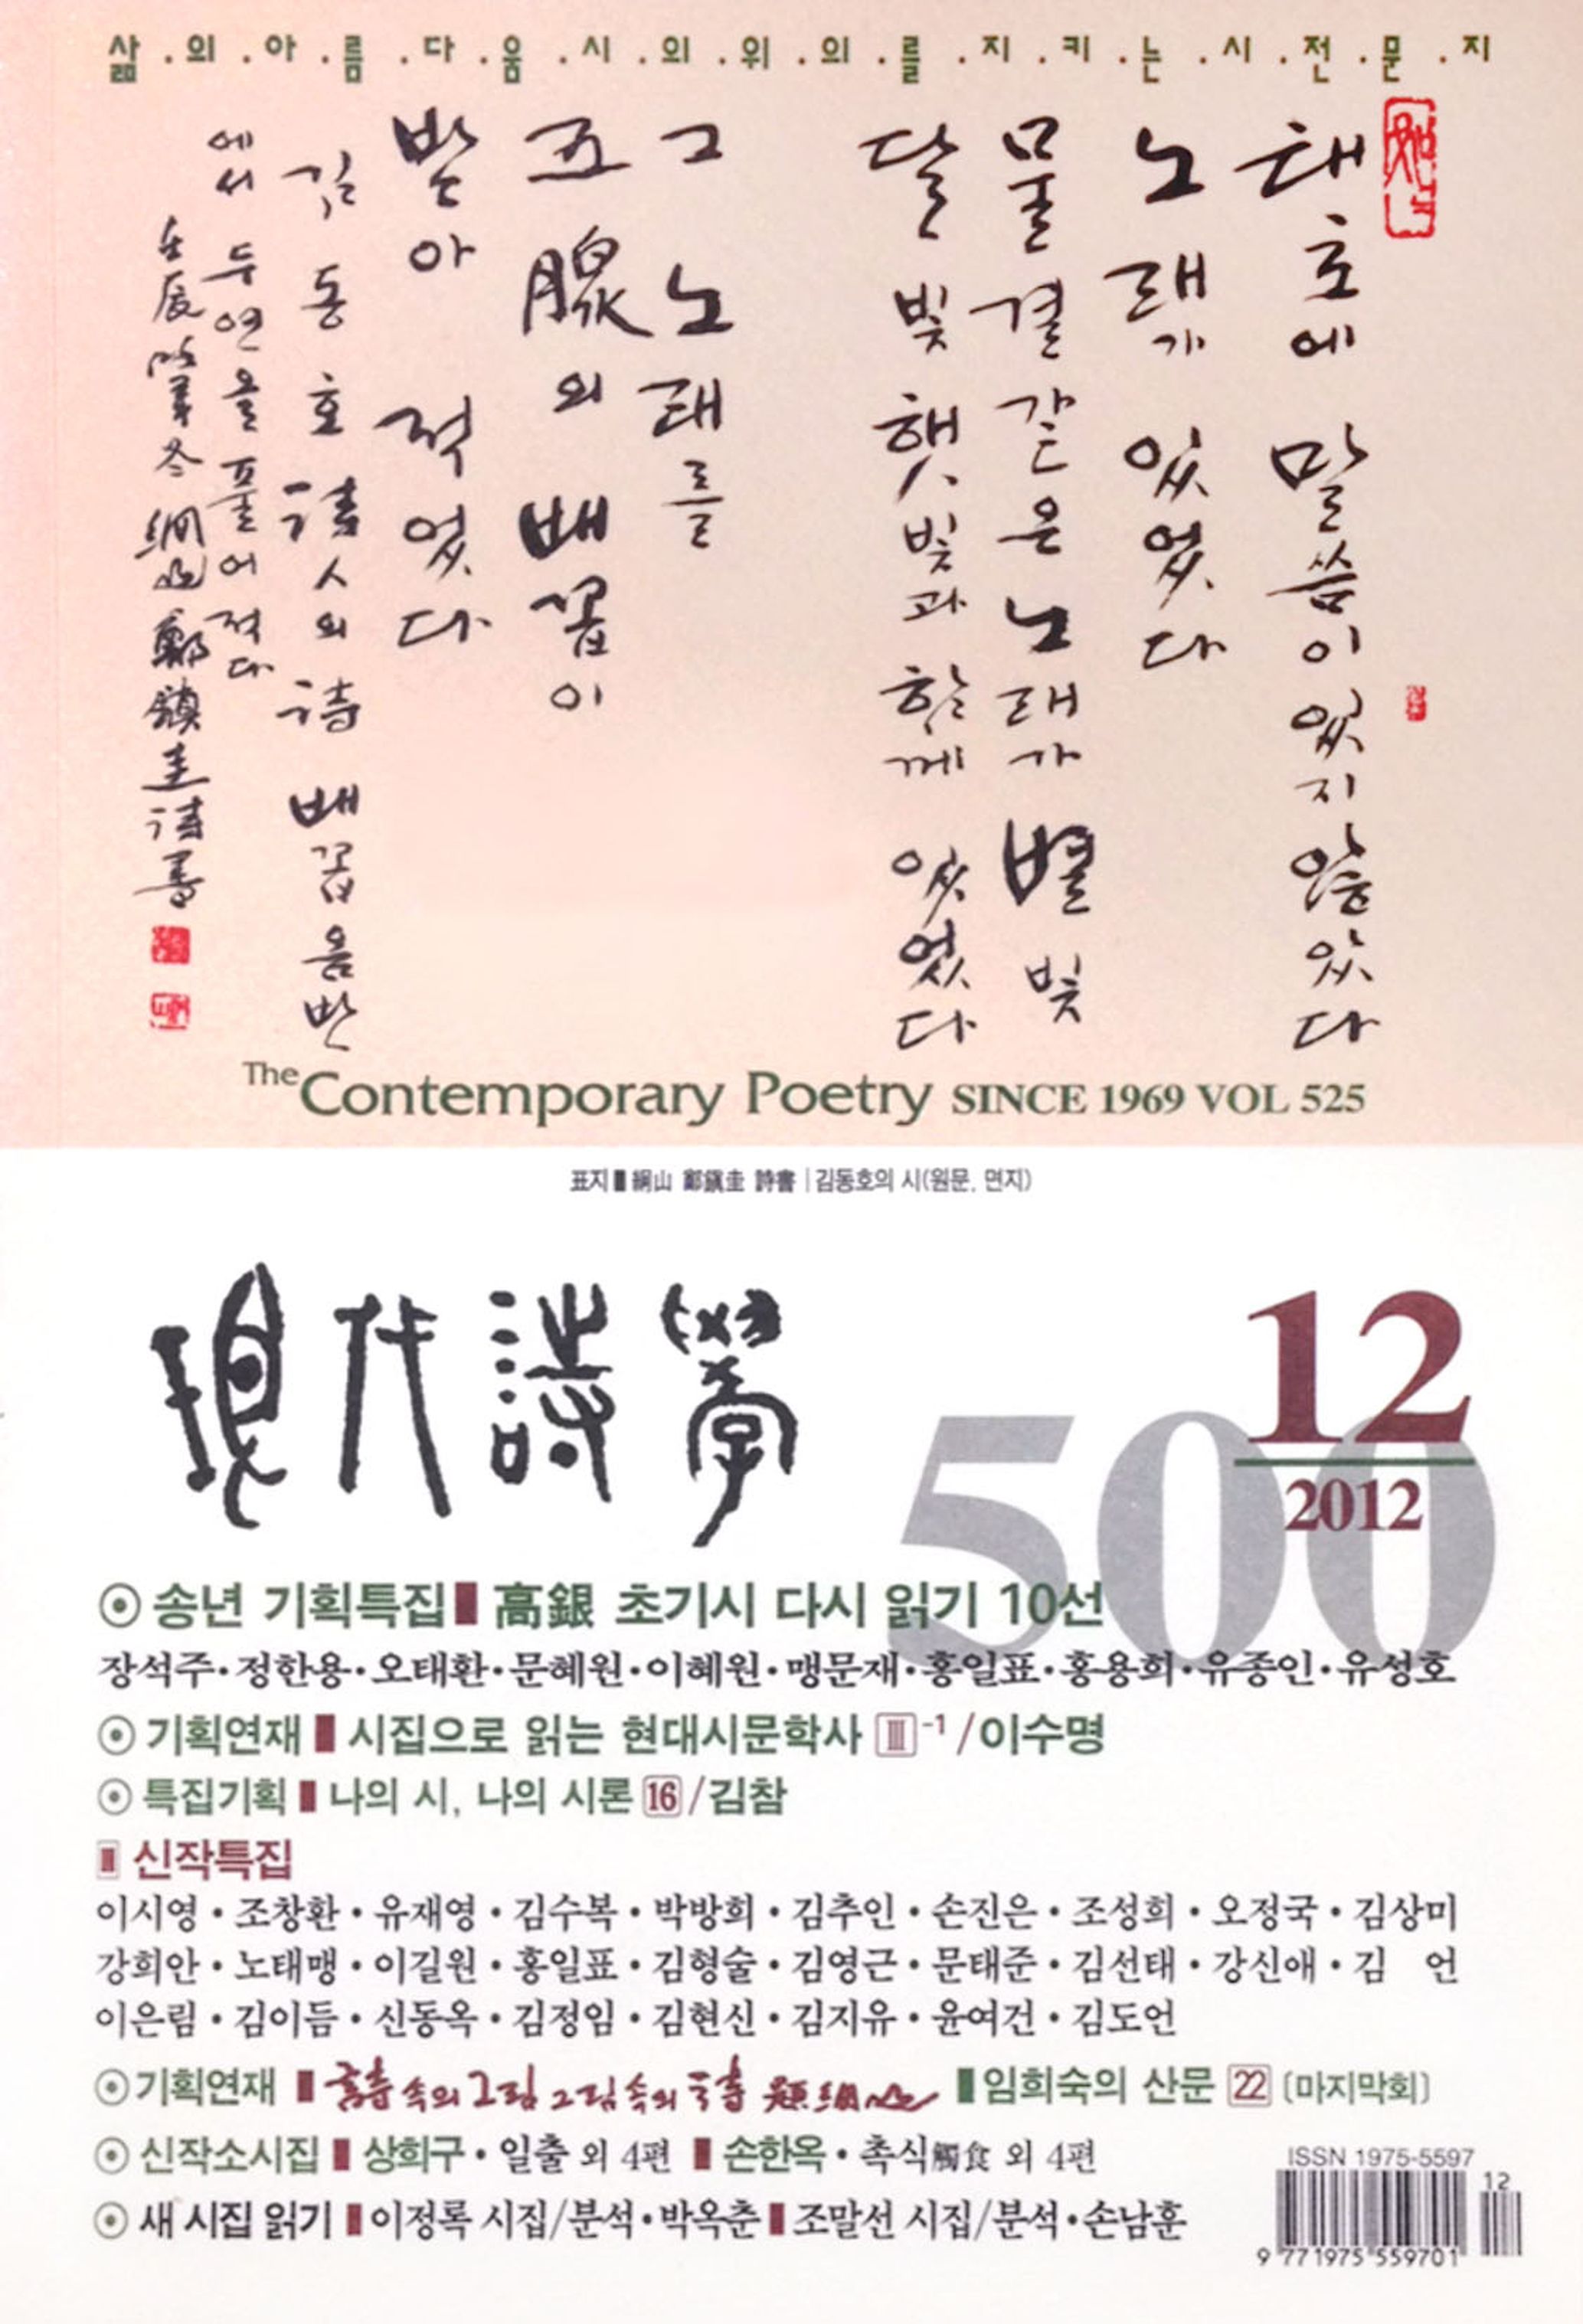 삶.의.아.름.다.움.시.의.위.의.를.지.키.는.시.전.문.지
태초에 말씀이 있지 않았다
노래가 있었다
물결 같은 노래가 별빛
달빛 햇빛과 함께 있었다
그 노래를
五腺의 배꼽이
받아 적었다
김동호 詩人의 詩 배꼽 음반
에서 두 연을 풀어 적다
壬辰肇冬 絅山 鄭鎭圭 詩書
The Contemporary Poetry SINCE 1969 VOL 525
표지 ▮ 絅山 鄭鎭圭 詩書 | 김동호의 시(원문, 면지)
現代詩學
12
2012
500
⊙ 송년 기획특집 ▮ 高銀 초기시 다시 읽기 10선
장석주·정한용·오태환·문혜원·이혜원·맹문재·홍일표·홍용희·유종인·유성호
⊙ 기획연재 ▮ 시집으로 읽는 현대시문학사 Ⅲ-1 / 이수명
⊙ 특집기획 ▮ 나의 시, 나의 시론 16 / 김참
▮ 신작특집
이시영 · 조창환 · 유재영 · 김수복 · 박방희 · 김추인 · 손진은 · 조성희 · 오정국 · 김상미
강희안 · 노태맹 · 이길원 · 홍일표 · 김형술 · 김영근 · 문태준 · 김선태 · 강신애 · 김 언
이은림 · 김이듬 · 신동옥 · 김정임 · 김현신 · 김지유 · 윤여건 · 김도언
⊙ 기획연재 ▮ 詩 속의 그림 그림 속의 詩 題絅山 ▮ 임희숙의 산문 22 (마지막회)
⊙ 신작소시집 ▮ 상희구 · 일출 외 4편 ▮ 손한옥 · 촉식觸食 외 4편
⊙ 새 시집 읽기 ▮ 이정록 시집/분석·박옥춘 ▮ 조말선 시집/분석·손남훈
ISSN 1975-5597
12
9 771975 559701